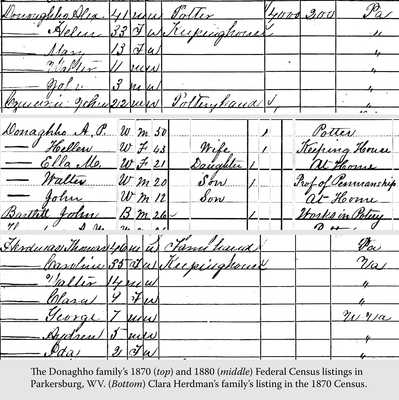 Donoughho Alex. 41 M W Potter 4000 300 Pa
— Helen 33 F W Keeping house "
— Mary 13 F W "
— Walter 11 M W "
— John 3 M W "
John 22 M W Pottery hand
Donaghho A. P. W M 50 1 Potter
— Hellen W F 43 Wife 1 Keeping House
— Ella M. W F 21 Daughter 1 At Home
— Walter W M 20 Son 1 Prof of Penmanship
— John W M 12 Son At Home
Bartlett John B M 26 1 Works in Potry
Thomas 46 M W Farm hand Va
— Caroline 35 F W Keeping house Va
— Walter 14 M W "
— Clara 9 F W "
— George 7 M W W Va
— Andrew 5 M W "
— Ada 2 F W "
The Donaghho family's 1870 (top) and 1880 (middle) Federal Census listings in
Parkersburg, WV. (Bottom) Clara Herdman's family's listing in the 1870 Census.